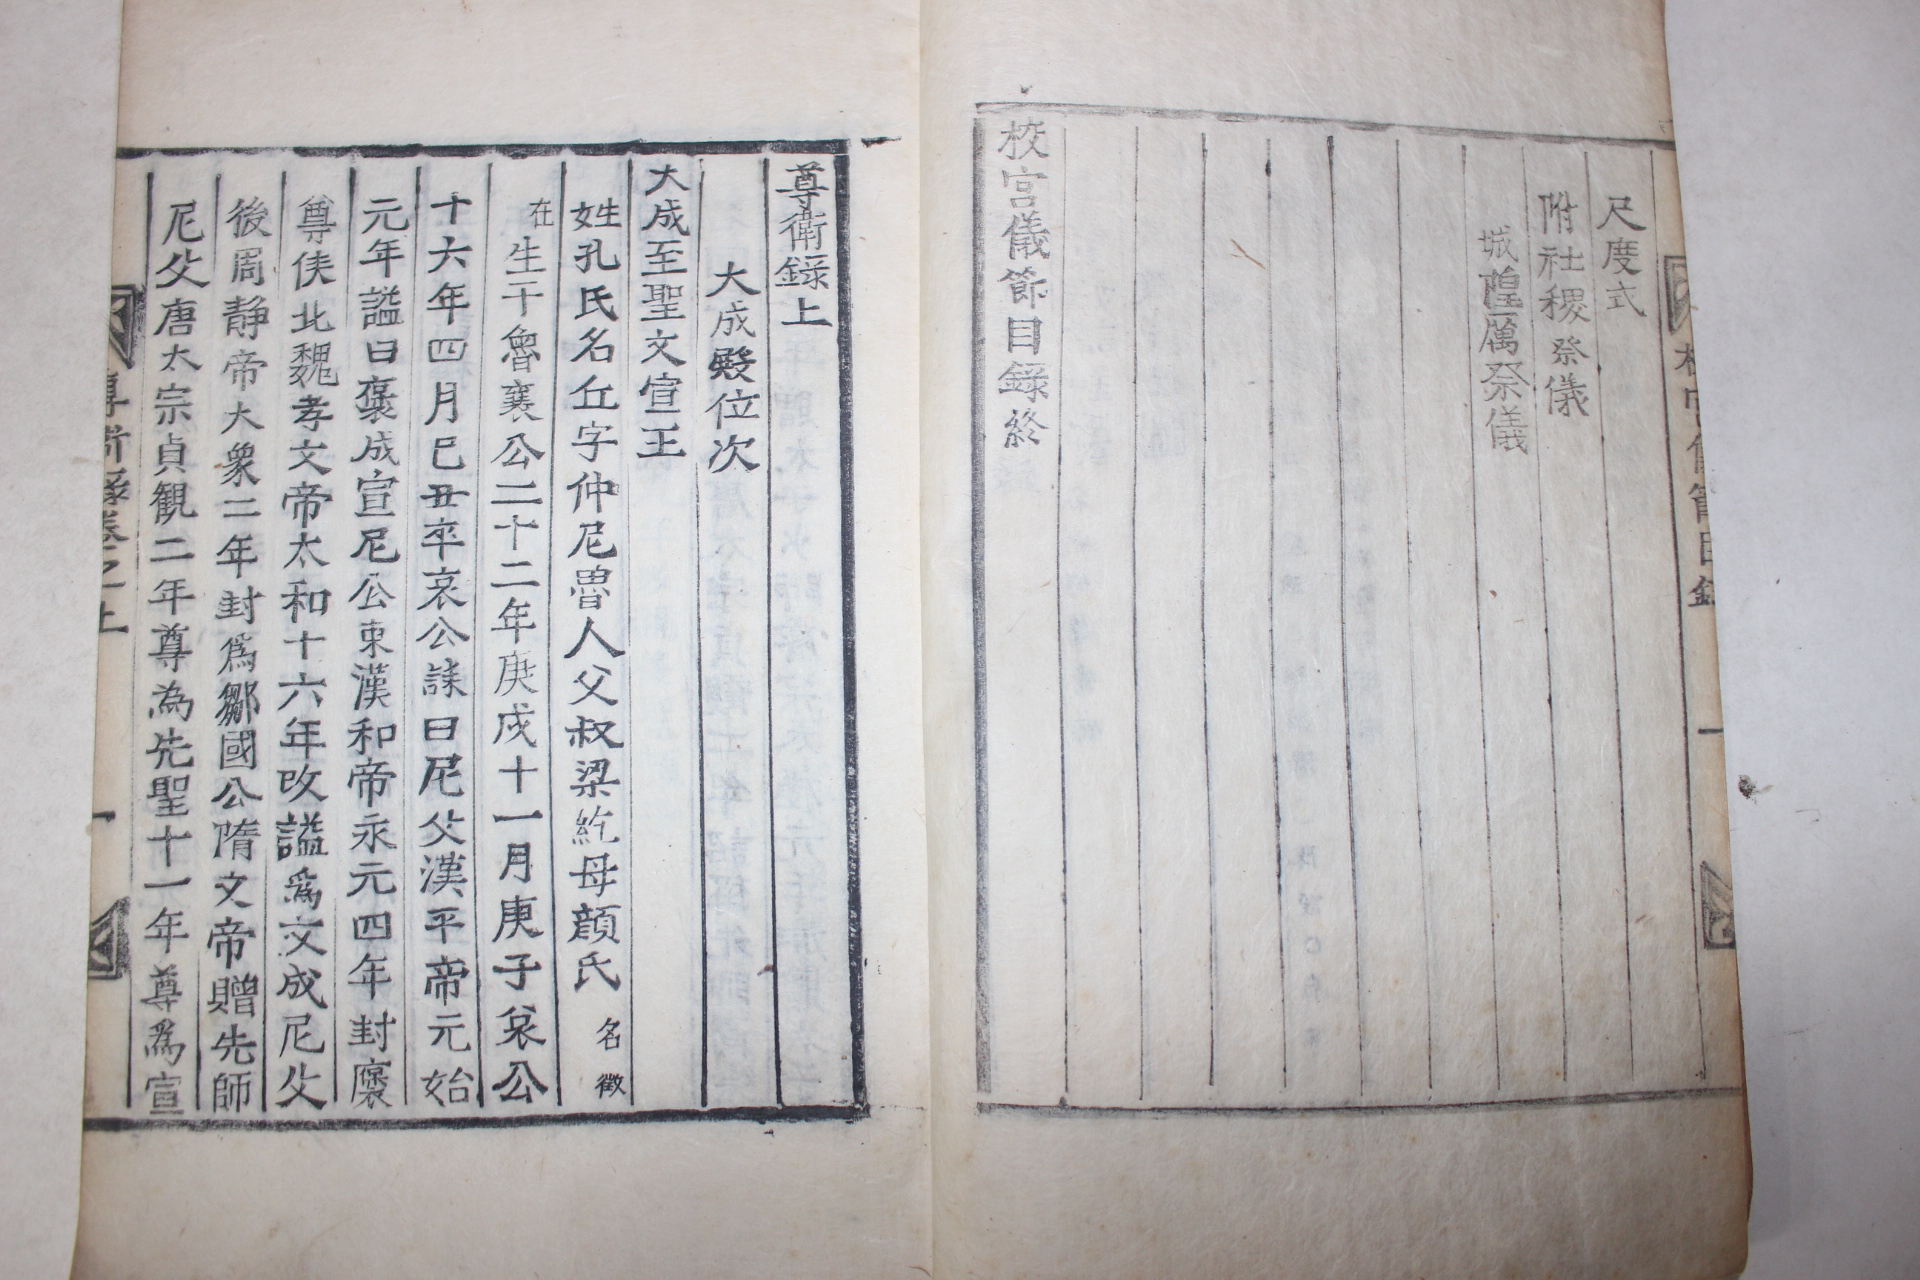 尺度式
附社稷祭儀
城隍厲祭儀
校宮儀節目錄終
校宮儀節目錄
一
尊衛錄上
大成殿位次
大成至聖文宣王
姓孔氏名丘字仲尼魯人父叔梁紇母顔氏名徵
在生于魯襄公二十二年庚戌十一月庚子哀公
十六年四月己丑卒哀公誄曰尼父漢平帝元始
元年謚曰褒成宣尼公東漢和帝永元四年封褒
尊侯北魏孝文帝太和十六年改謚爲文成尼父
後周静帝大象二年封爲鄒國公隋文帝贈先師
尼父唐太宗貞観二年尊為先聖十一年尊爲宣
尊衛錄卷之上
一